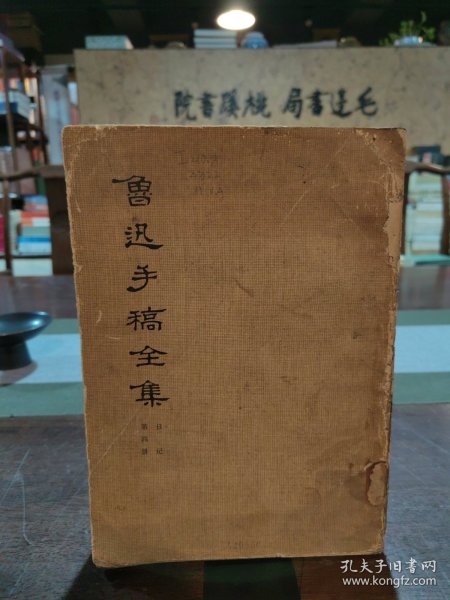 毛边书局 桃蹊书院
魯迅手稿全集
日记
第四册
孔夫子旧书网
www.kongfz.com